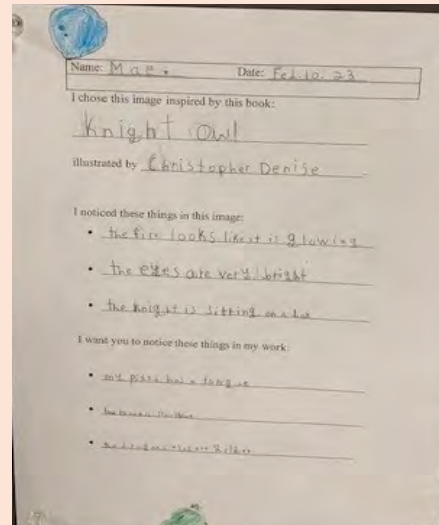 Name: Mae. Date: Feb. 10. 23
I chose this image inspired by this book:
Knight Owl
illustrated by Christopher Denise
I noticed these things in this image:
• the fire looks like it is glowing
• the eyes are very bright
• the knight is sitting on a
I want you to notice these things in my work:
• my has a